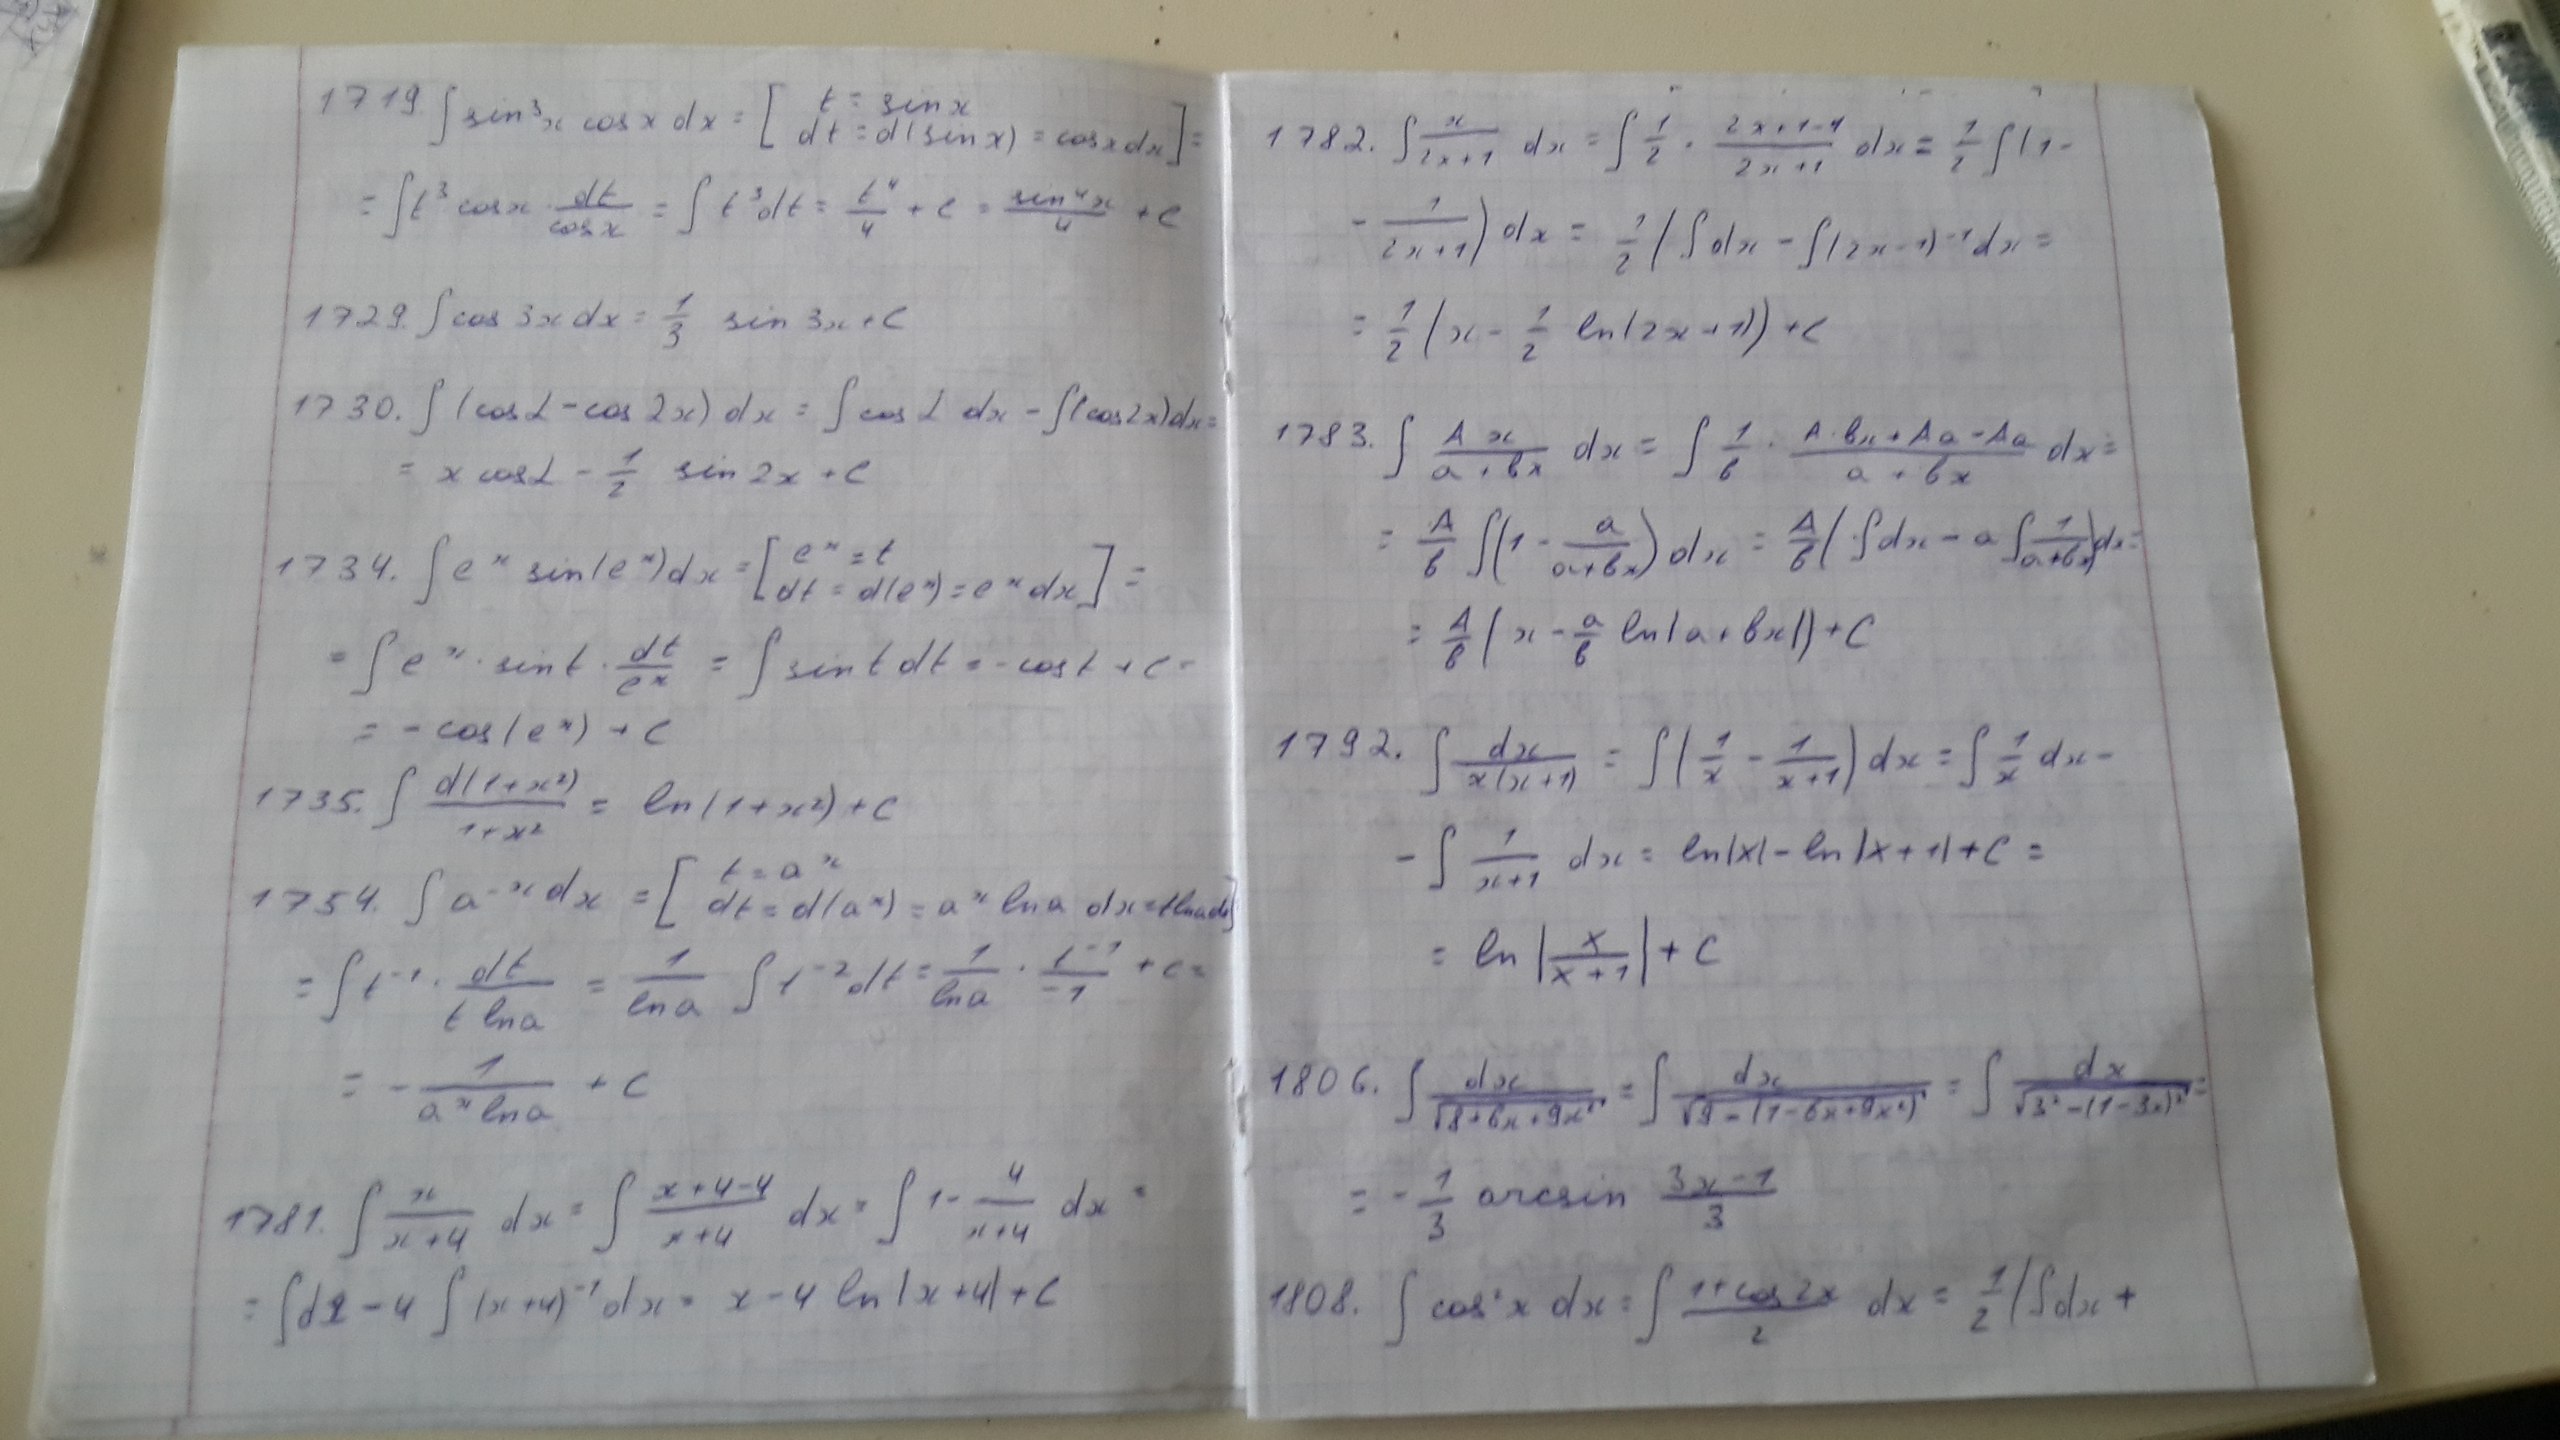 1719. ∫ sin³x cos x dx = [ t = sin x
dt = d(sin x) = cos x dx ] =
= ∫ t³ cos x · dt/cos x = ∫ t³ dt = t⁴/4 + C = sin⁴x/4 + C
1729. ∫ cos 3x dx = 1/3 sin 3x + C
1730. ∫ (cos α - cos 2x) dx = ∫ cos α dx - ∫(cos 2x) dx =
= x cos α - 1/2 sin 2x + C
1734. ∫ eˣ sin(eˣ) dx = [ eˣ = t
dt = d(eˣ) = eˣ dx ] =
= ∫ eˣ · sin t · dt/eˣ = ∫ sin t dt = - cos t + C =
= - cos(eˣ) + C
1735. ∫ d(1+x²)/(1+x²) = ln(1+x²) + C
1754. ∫ a⁻ˣ dx = [ t = aˣ
dt = d(aˣ) = aˣ ln a dx = t ln a dx ]
= ∫ t⁻¹ · dt/(t ln a) = 1/ln a ∫ t⁻² dt = 1/ln a · t⁻¹/-1 + C =
= - 1/(aˣ ln a) + C
1781. ∫ x/(x+4) dx = ∫ (x+4-4)/(x+4) dx = ∫ 1 - 4/(x+4) dx =
= ∫ dx - 4 ∫ (x+4)⁻¹ dx = x - 4 ln|x+4| + C
1782. ∫ x/(2x+1) dx = ∫ 1/2 · (2x+1-1)/(2x+1) dx = 1/2 ∫ (1 -
- 1/(2x+1)) dx = 1/2 ( ∫ dx - ∫ (2x-1)⁻¹ dx =
= 1/2 ( x - 1/2 ln(2x+1)) + C
1783. ∫ Ax/(a+bx) dx = ∫ 1/b · (A·bx + Aa - Aa)/(a+bx) dx =
= A/b ∫ (1 - a/(a+bx)) dx = A/b ( ∫ dx - a ∫ 1/(a+bx)) dx =
= A/b ( x - a/b ln|a+bx|) + C
1792. ∫ dx/(x(x+1)) = ∫ (1/x - 1/(x+1)) dx = ∫ 1/x dx -
- ∫ 1/(x+1) dx = ln|x| - ln|x+1| + C =
= ln |x/(x+1)| + C
1806. ∫ dx/√(8+6x+9x²) = ∫ dx/√(9-(1-6x+9x²)) = ∫ dx/√(3²-(1-3x)²) =
= - 1/3 arcsin (3x-1)/3
1808. ∫ cos²x dx = ∫ (1+cos 2x)/2 dx = 1/2 ( ∫ dx +